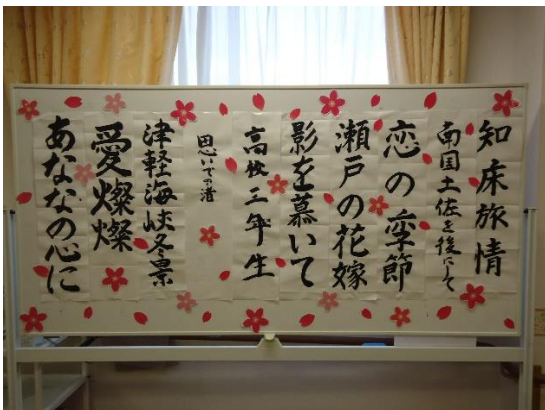 知床旅情
南国土佐を後にして
恋の季節
瀬戸の花嫁
影を慕いて
高校三年生
思いでの渚
津軽海峡冬景
愛燦燦
あななの心に